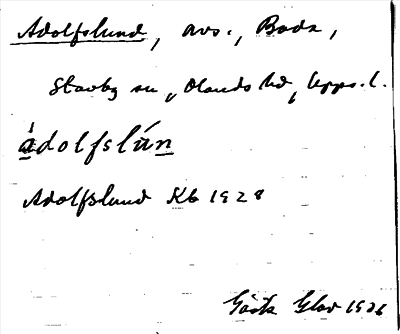 Adolfslund, avs., Boda,
Stavby sn, Olands hd, Upps. l.
ádolfslún
Adolfslund Kb 1928
Gösta Glav 1926